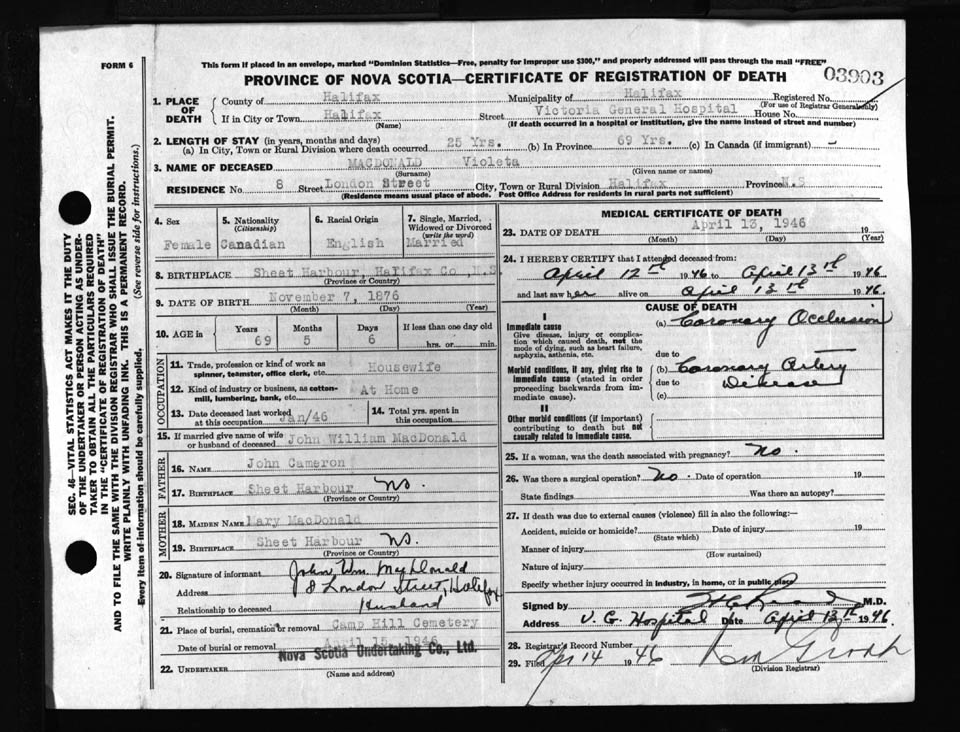 FORM 6
This form if placed in an envelope, marked "Dominion Statistics—Free, penalty for improper use $300," and properly addressed will pass through the mail "FREE"
PROVINCE OF NOVA SCOTIA—CERTIFICATE OF REGISTRATION OF DEATH
03903
SEC. 46—VITAL STATISTICS ACT MAKES IT THE DUTY
OF THE UNDERTAKER OR PERSON ACTING AS UNDER-
TAKER TO OBTAIN ALL THE PARTICULARS REQUIRED
IN THE "CERTIFICATE OF REGISTRATION OF DEATH"
AND TO FILE THE SAME WITH THE DIVISION REGISTRAR WHO SHALL ISSUE THE BURIAL PERMIT.
WRITE PLAINLY WITH UNFADING INK. THIS IS A PERMANENT RECORD.
Every item of information should be carefully supplied. (See reverse side for instructions.)
1. PLACE OF DEATH
County of Halifax Municipality of Halifax Registered No.
(For use of Registrar General only)
If in City or Town Halifax Street Victoria General Hospital House No.
(Name) (If death occurred in a hospital or institution, give the name instead of street and number)
2. LENGTH OF STAY (in years, months and days)
(a) In City, Town or Rural Division where death occurred 25 Yrs. (b) In Province 69 Yrs. (c) In Canada (if immigrant) -
3. NAME OF DECEASED MACDONALD Violeta
(Surname) (Given name or names)
RESIDENCE No 8 Street London Street City, Town or Rural Division Halifax Province N.S
(Residence means usual place of abode. Post Office Address for residents in rural parts not sufficient)
4. Sex Female
5. Nationality (Citizenship) Canadian
6. Racial Origin English
7. Single, Married, Widowed or Divorced (write the word) Married
8. BIRTHPLACE Sheet Harbour, Halifax Co ,N.S.
(Province or Country)
9. DATE OF BIRTH November 7, 1876
(Month) (Day) (Year)
10. AGE in Years Months Days If less than one day old
69 5 6 hrs. or min.
OCCUPATION
11. Trade, profession or kind of work as spinner, teamster, office clerk, etc. Housewife
12. Kind of industry or business, as cotton-mill, lumbering, bank, etc. At Home
13. Date deceased last worked at this occupation Jan/46
14. Total yrs. spent in this occupation
15. If married give name of wife or husband of deceased John William MacDonald
FATHER
16. NAME John Cameron
17. BIRTHPLACE Sheet Harbour NS.
(Province or Country)
MOTHER
18. MAIDEN NAME Mary MacDonald
19. BIRTHPLACE Sheet Harbour NS.
(Province or Country)
20. Signature of informant John Wm MacDonald
Address 8 London Street, Halifax
Relationship to deceased Husband
21. Place of burial, cremation or removal Camp Hill Cemetery
Date of burial or removal April 15, 1946
22. UNDERTAKER Nova Scotia Undertaking Co., Ltd.
(Name and address)
MEDICAL CERTIFICATE OF DEATH
23. DATE OF DEATH April 13, 1946 19
(Month) (Day) (Year)
24. I HEREBY CERTIFY that I attended deceased from:
April 12th 1946 to April 13th 1946
and last saw her alive on April 13th 1946.
CAUSE OF DEATH
I
Immediate cause
Give disease, injury or complication which caused death, not the mode of dying, such as heart failure, asphyxia, asthenia, etc.
(a) Coronary Occlusion
due to
Morbid conditions, if any, giving rise to immediate cause (stated in order proceeding backwards from immediate cause).
(b) Coronary Artery
due to Disease
(c)
II
Other morbid conditions (if important) contributing to death but not causally related to immediate cause.
25. If a woman, was the death associated with pregnancy? No.
26. Was there a surgical operation? No. Date of operation 19
State findings Was there an autopsy?
27. If death was due to external causes (violence) fill in also the following:—
Accident, suicide or homicide? Date of injury 19
(State which)
Manner of injury
(How sustained)
Nature of injury
Specify whether injury occurred in industry, in home, or in public place
Signed by M.D.
Address V. G. Hospital Date April 13th 1946.
28. Registrar's Record Number
29. Filed Apr 14 1946
(Division Registrar)